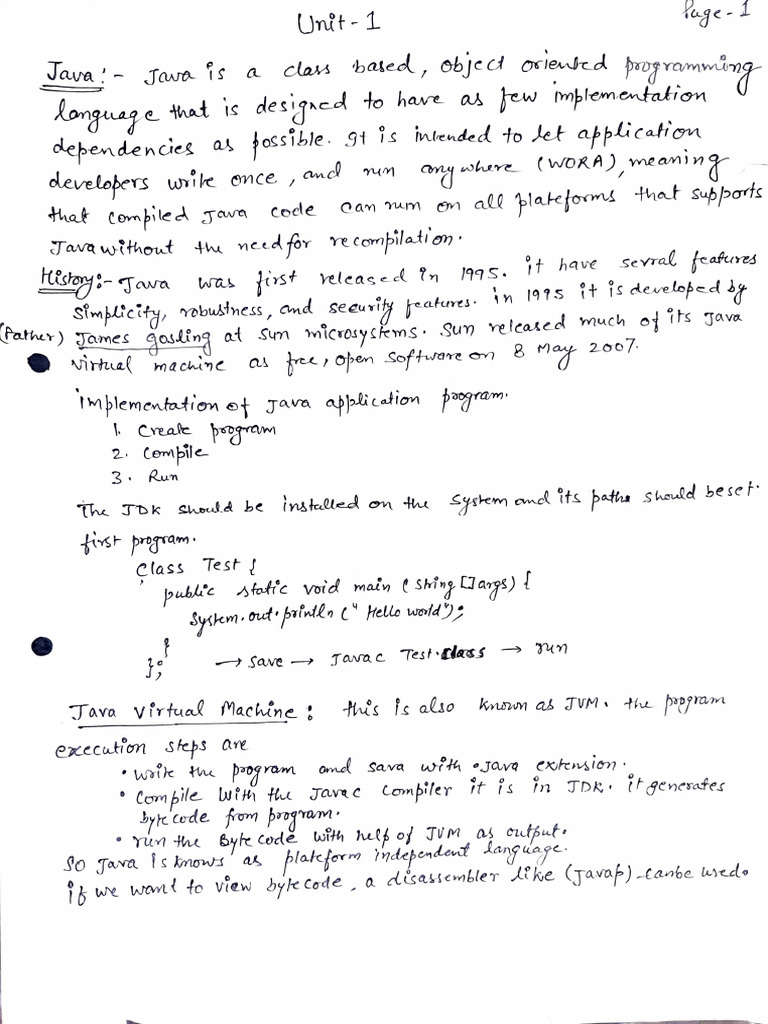 Unit - 1
Page - 1
Java :- Java is a class based, object oriented programming
language that is designed to have as few implementation
dependencies as possible. It is intended to let application
developers write once, and run anywhere (WORA), meaning
that compiled Java code can run on all plateforms that supports
Java without the need for recompilation.
History:- Java was first released in 1995. it have sevral features
simplicity, robustness, and security features. in 1995 it is developed by
(father) James gosling at sun microsystems. Sun released much of its Java
virtual machine as free, open software on 8 May 2007.
implementation of Java application program.
1. Create program
2. Compile
3. Run
The JDK should be installed on the system and its paths should be set.
first program.
class Test {
public static void main (string [] args) {
System.out.println (" Hello world");
}
}; → save → Javac Test.class → run
Java Virtual Machine : this is also known as JVM. the program
execution steps are
• write the program and sava with .java extension.
• compile with the Javac compiler it is in JDK. it generates
byte code from program.
• run the Byte code with help of JVM as output.
So Java is knows as plateform independent language.
if we want to view byte code, a disassembler like (Javap) can be used.